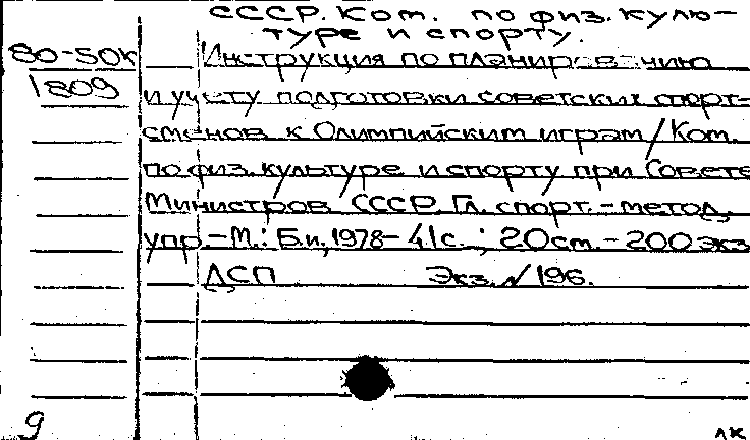 СССР. Ком. по физ. культуре и спорту.
80-50к
1809
Инструкция по планированию
и учету подготовки советских спорт-
сменов к Олимпийским играм / Ком.
по физ. культуре и спорту при Совете
Министров СССР. Гл. спорт.-метод.
упр. - М.: Б.и., 1978 - 41с. ; 20см. - 200 экз
ДСП Экз. № 196.
9
ЛК